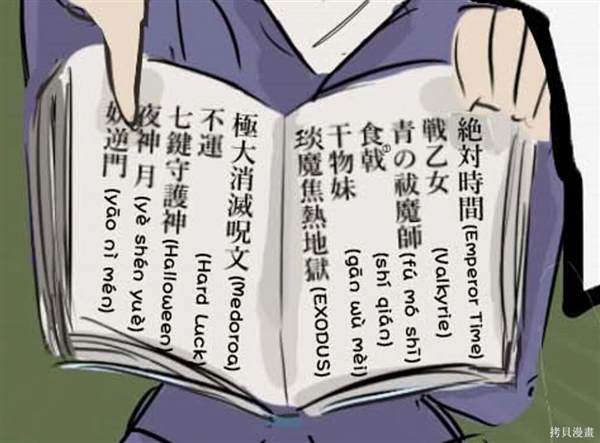 絶対時間(Emperor Time)
戦乙女(Valkyrie)
青の祓魔師(fú mó shī)
食戟(shí qián)
干物妹(gān wù mèi)
琰魔焦熱地獄(EXODUS)
極大消滅呪文(Medoroa)
不運(Hard Luck)
七鍵守護神(Halloween)
夜神月(yè shén yuè)
妖逆門(yāo nì mén)
拷貝漫畫